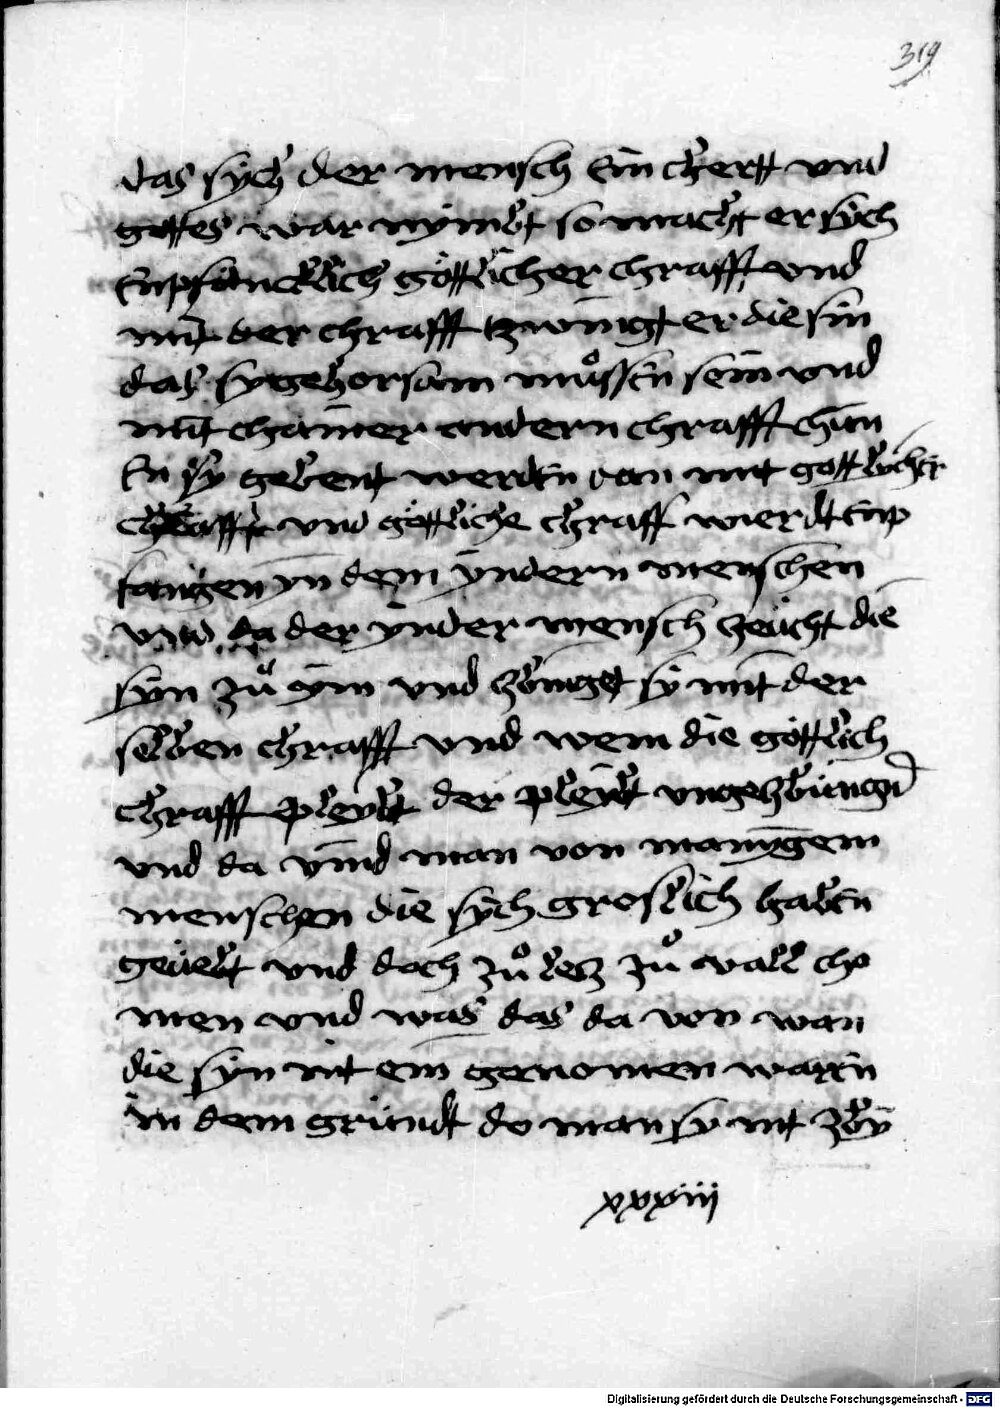 319
das sych der mensch ein chertt vnd
gottes war nymbt so macht er sych
Enpfencklich göttlicher chrafft vnd
mit der chrafft tzwingt er die sin
das sy gehorsam müssen sein vnd
mit chainer andern chrafft chan
En sy gebent werden dan mit gottlicher
chrafft vnd göttliche chrafft wierdt enp
fangen yn dem yndern menschen
vnd da der ynder mensch zeücht die
syn zů ym vnd zbinget sy mit der
selben chrafft vnd wem die göttlich
chrafft pleybt der pleybt vngezbungen
vnd da vind man von manygem
menschen die sych groslich haben
geüebt vnd doch zů lecz zů vall cho
men vnd was das da von wan
die syn nit ein genomen waren
in dem gründt do man sy mit zby
xxxiii
Digitalisierung gefördert durch die Deutsche Forschungsgemeinschaft - DFG